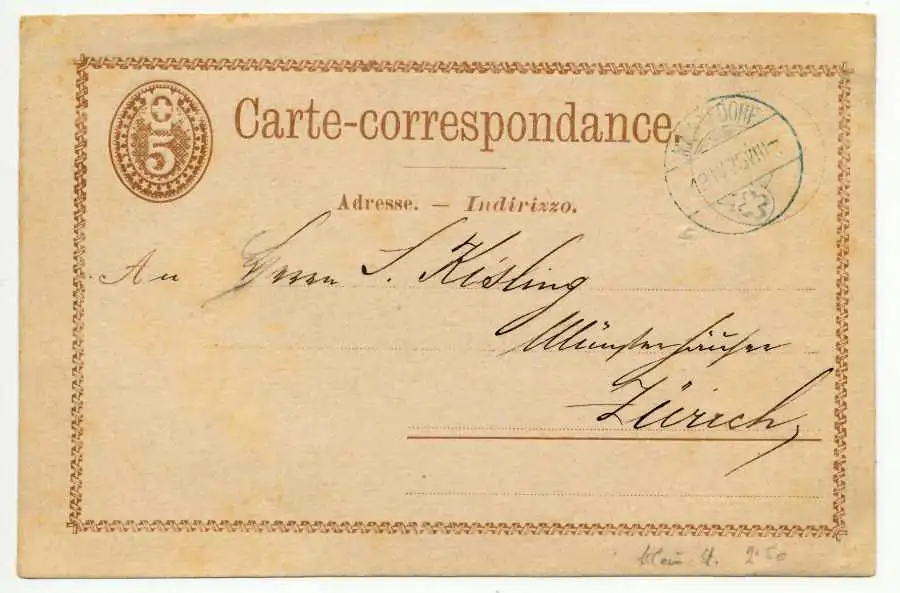 5
Carte-correspondance.
Adresse. — Indirizzo.
An Herrn S. Kisling
Münsterhäuser
Zürich,
2.50